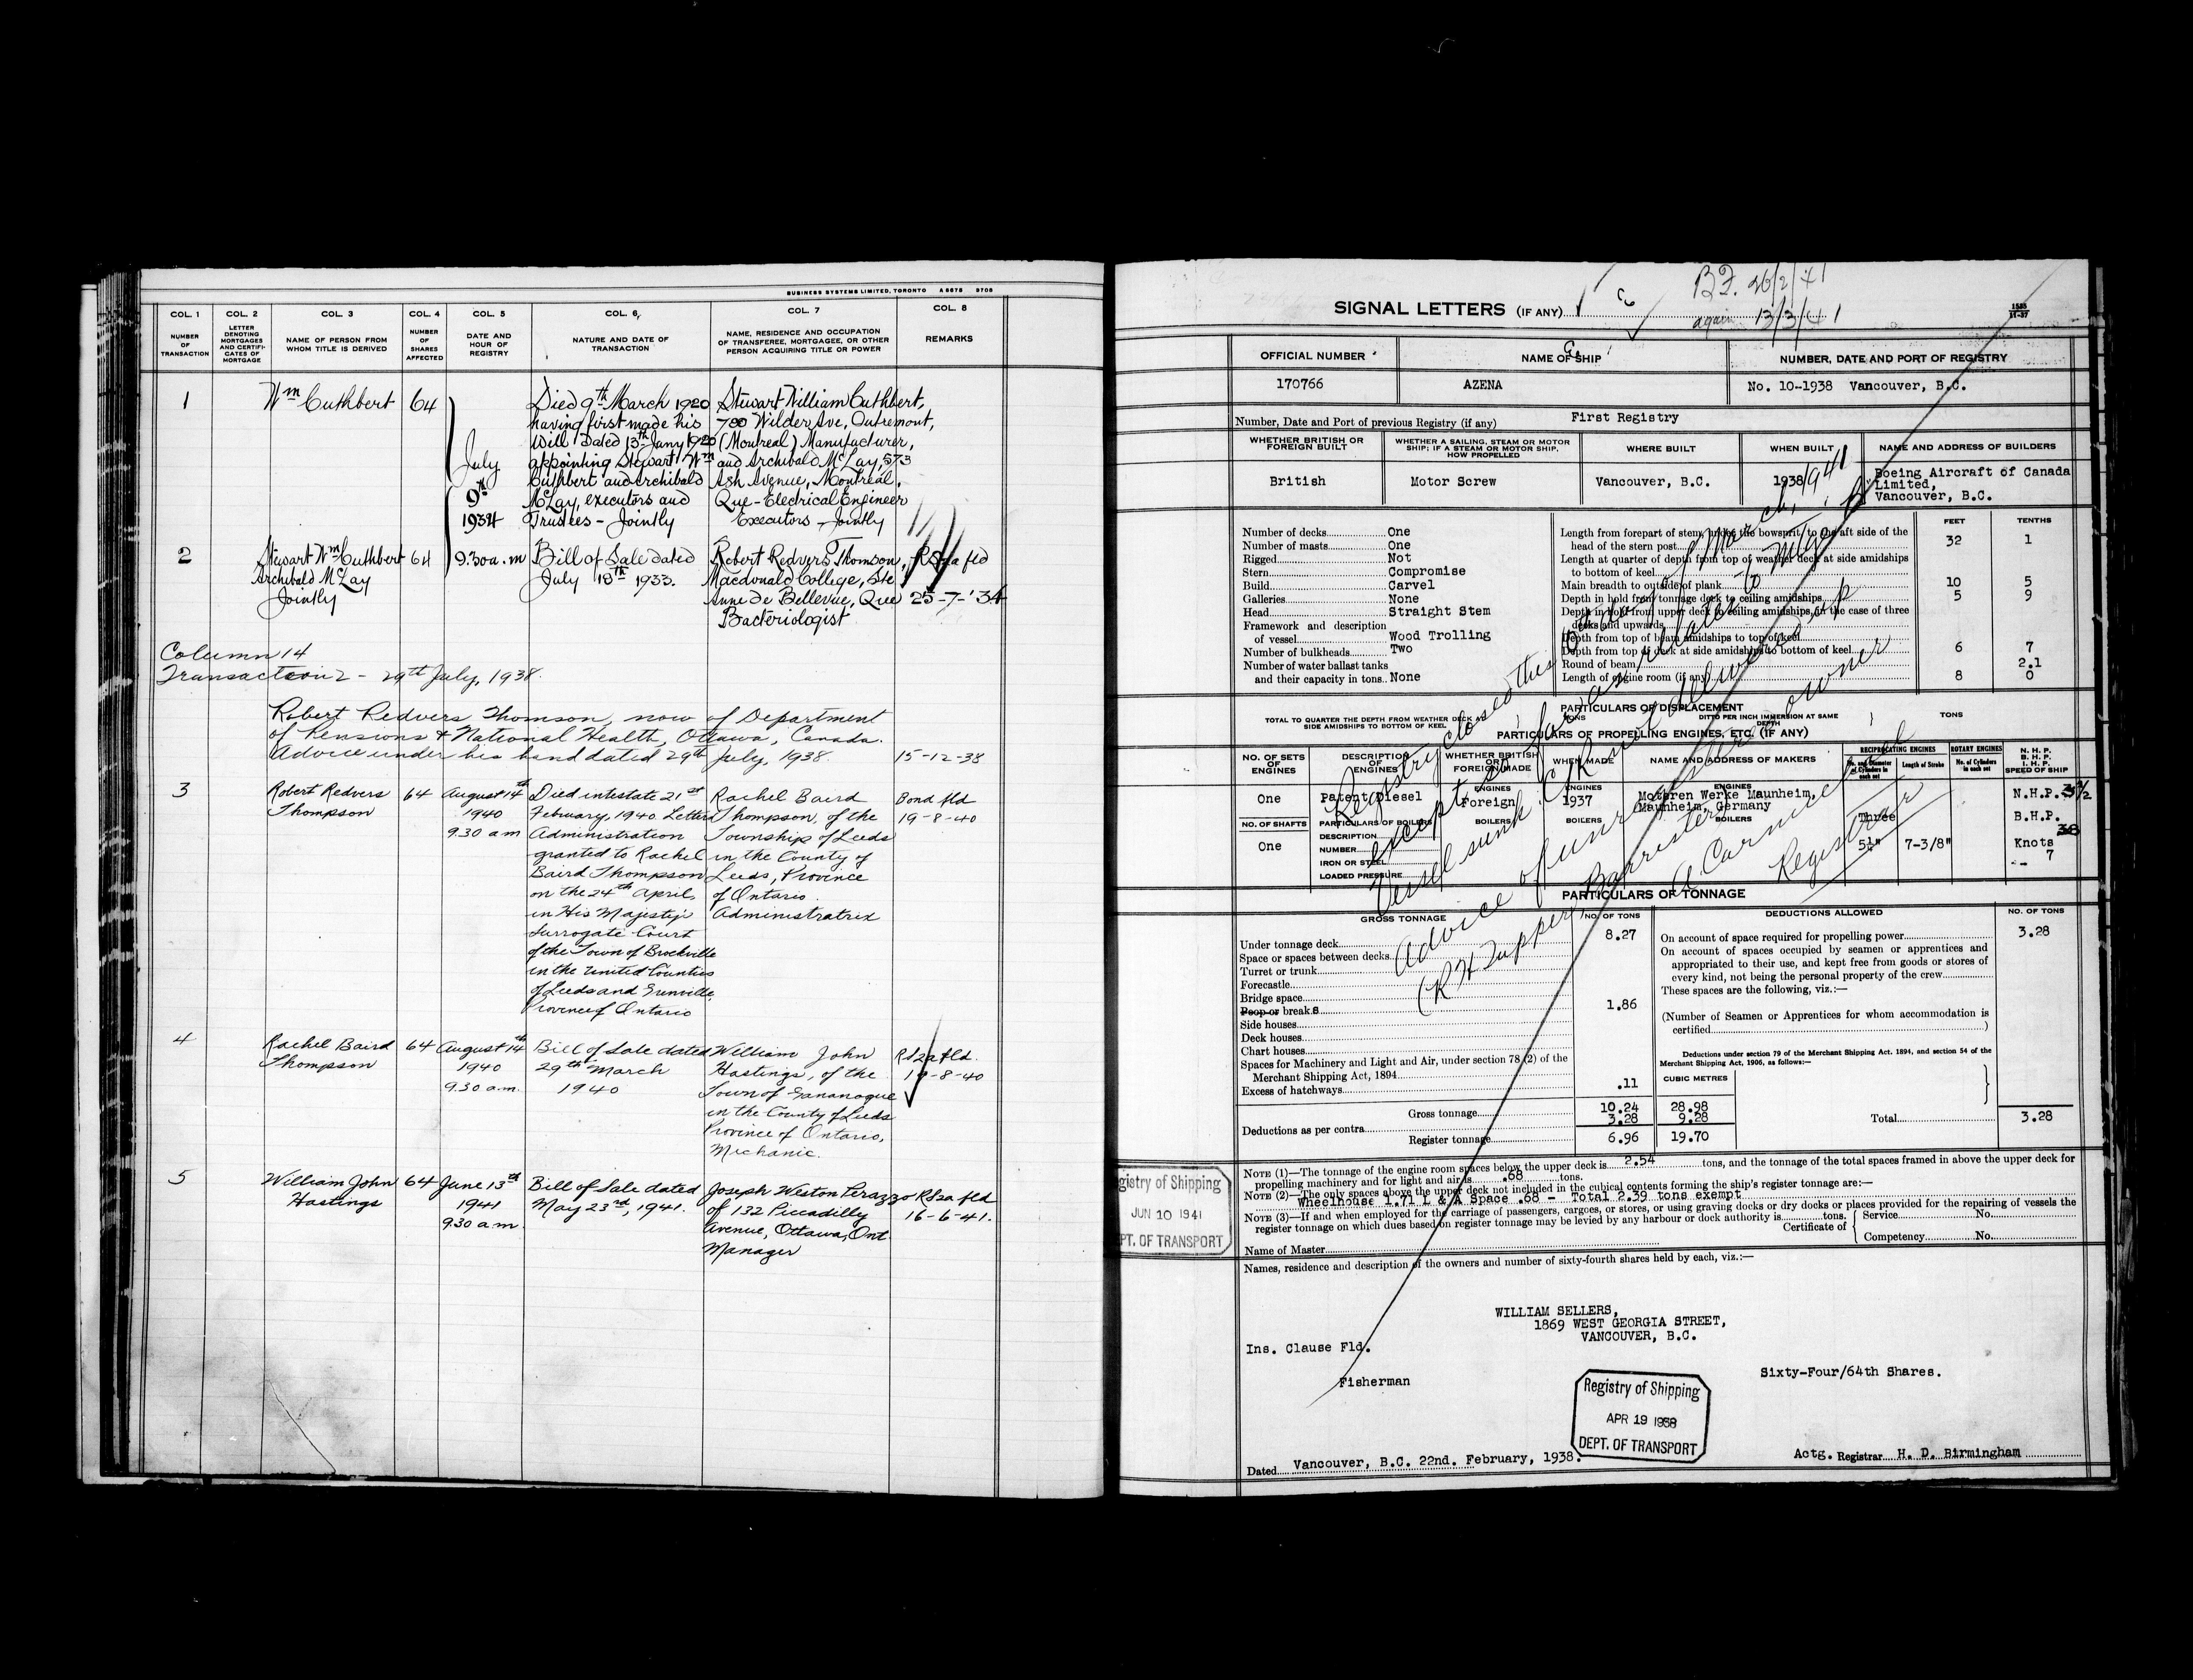 BUSINESS SYSTEMS LIMITED, TORONTO A 8678 8708
COL. 1 COL. 2 COL. 3 COL. 4 COL. 5 COL. 6 COL. 7 COL. 8
NUMBER OF TRANSACTION
LETTER DENOTING MORTGAGES AND CERTIFICATES OF MORTGAGE
NAME OF PERSON FROM WHOM TITLE IS DERIVED
NUMBER OF SHARES AFFECTED
DATE AND HOUR OF REGISTRY
NATURE AND DATE OF TRANSACTION
NAME, RESIDENCE AND OCCUPATION OF TRANSFEREE, MORTGAGEE, OR OTHER PERSON ACQUIRING TITLE OR POWER
REMARKS
1
Wm Cuthbert
64
July
9th
1934
9.30 a.m
Died 9th March 1920
having first made his
Will Dated 13th Jany 1920
appointing Stewart Wm
Cuthbert and Archibald
McLay, executors and
Trustees - Jointly
Stewart William Cuthbert,
700 Wilder Ave, Outremont,
(Montreal) Manufacturer,
and Archibald McLay, 573
Ash Avenue, Montreal,
Que - Electrical Engineer
Executors - Jointly
2
Stewart Wm Cuthbert
Archibald McLay
Jointly
64
Bill of Sale dated
July 18th 1933.
Robert Redvers Thomson,
Macdonald College, Ste
Anne de Bellevue, Que
Bacteriologist
fld
25-7-'34
Column 14
Transaction 2 - 29th July, 1938.
Robert Redvers Thomson, now of Department
of Pensions & National Health, Ottawa, Canada.
Advice under his hand dated 29th July, 1938.
15-12-38
3
Robert Redvers
Thompson
64
August 14th
1940
9.30 am
Died intestate 21st
February, 1940. Letters
Administration
granted to Rachel
Baird Thompson
on the 24th April,
in His Majesty's
Surrogate Court
of the Town of Brockville
in the United Counties
of Leeds and Grenville,
Province of Ontario
Rachel Baird
Thompson, of the
Township of Leeds
in the County of
Leeds, Province
of Ontario.
Administratrix
Bond fld
19-8-40
4
Rachel Baird
Thompson
64
August 14th
1940
9.30 a.m.
Bill of Sale dated
29th March
1940
William John
Hastings, of the
Town of Gananoque
in the County of Leeds
Province of Ontario,
Mechanic.
fld.
19-8-40
5
William John
Hastings
64
June 13th
1941
9.30 a.m.
Bill of Sale dated
May 23rd, 1941.
Joseph Weston Perazzo
of 132 Piccadilly
Avenue, Ottawa, Ont
Manager
fld
16-6-41.
B.F. 26/2/41
again 13/3/41
SIGNAL LETTERS (IF ANY)
1553
11-37
OFFICIAL NUMBER
NAME OF SHIP
NUMBER, DATE AND PORT OF REGISTRY
170766
AZENA
No. 10-1938 Vancouver, B.C.
Number, Date and Port of previous Registry (if any) First Registry
WHETHER BRITISH OR FOREIGN BUILT
WHETHER A SAILING, STEAM OR MOTOR SHIP; IF A STEAM OR MOTOR SHIP, HOW PROPELLED
WHERE BUILT
WHEN BUILT
NAME AND ADDRESS OF BUILDERS
British
Motor Screw
Vancouver, B.C.
1938
Boeing Aircraft of Canada
Limited,
Vancouver, B.C.
FEET TENTHS
Number of decks One
Number of masts One
Rigged Not
Stern Compromise
Build Carvel
Galleries None
Head Straight Stem
Framework and description
of vessel Wood Trolling
Number of bulkheads Two
Number of water ballast tanks
and their capacity in tons None
Length from forepart of stem, under the bowsprit, to the aft side of the
head of the stern post 32 1
Length at quarter of depth from top of weather deck at side amidships
to bottom of keel
Main breadth to outside of plank 10 5
Depth in hold from tonnage deck to ceiling amidships 5 9
Depth in hold from upper deck to ceiling amidships, in the case of three
decks and upwards
Depth from top of beam amidships to top of keel
Depth from top of deck at side amidships to bottom of keel 6 7
Round of beam 2.1
Length of engine room (if any) 8 0
PARTICULARS OF DISPLACEMENT
TOTAL TO QUARTER THE DEPTH FROM WEATHER DECK AT
SIDE AMIDSHIPS TO BOTTOM OF KEEL
TONS
DITTO PER INCH IMMERSION AT SAME
DEPTH
TONS
PARTICULARS OF PROPELLING ENGINES, ETC. (IF ANY)
NO. OF SETS OF ENGINES
DESCRIPTION OF ENGINES
WHETHER BRITISH OR FOREIGN MADE
WHEN MADE
NAME AND ADDRESS OF MAKERS
RECIPROCATING ENGINES
ROTARY ENGINES
No. and Diameter of Cylinders in each set
Length of Stroke
No. of Cylinders in each set
N. H. P.
B. H. P.
I. H. P.
SPEED OF SHIP
ENGINES ENGINES ENGINES
One
Patent Diesel
Foreign
1937
Motoren Werke Maunheim,
Maunheim, Germany
N.H.P. 3½
NO. OF SHAFTS
PARTICULARS OF BOILERS
BOILERS BOILERS BOILERS
Three
B.H.P.
38
DESCRIPTION
One
NUMBER
5½"
7-3/8"
Knots
7
IRON OR STEEL
LOADED PRESSURE
Registry closed this day of March, 1941
except so far as relates to Mtge B
Vessel sunk
Advice of unregistered owner
(R H Tupper, Barrister)
A Carmichael
Registrar
PARTICULARS OF TONNAGE
GROSS TONNAGE
NO. OF TONS
DEDUCTIONS ALLOWED
NO. OF TONS
Under tonnage deck 8.27
Space or spaces between decks
Turret or trunk
Forecastle
Bridge space
Poop or breaks 1.86
Side houses
Deck houses
Chart houses
Spaces for Machinery and Light and Air, under section 78 (2) of the
Merchant Shipping Act, 1894
Excess of hatchways .11
Gross tonnage 10.24 28.98
Deductions as per contra 3.28 9.28
Register tonnage 6.96 19.70
On account of space required for propelling power 3.28
On account of spaces occupied by seamen or apprentices and
appropriated to their use, and kept free from goods or stores of
every kind, not being the personal property of the crew
These spaces are the following, viz.:—
(Number of Seamen or Apprentices for whom accommodation is
certified )
Deductions under section 79 of the Merchant Shipping Act, 1894, and section 54 of the
Merchant Shipping Act, 1906, as follows:—
CUBIC METRES
Total 3.28
NOTE (1)—The tonnage of the engine room spaces below the upper deck is 2.54 tons, and the tonnage of the total spaces framed in above the upper deck for
propelling machinery and for light and air is .68 tons.
NOTE (2)—The only spaces above the upper deck not included in the cubical contents forming the ship's register tonnage are:—
Wheelhouse 1.71 L & A Space .68 - Total 2.39 tons exempt
NOTE (3)—If and when employed for the carriage of passengers, cargoes, or stores, or using graving docks or dry docks or places provided for the repairing of vessels the
register tonnage on which dues based on register tonnage may be levied by any harbour or dock authority is tons.
Certificate of { Service No.
Competency No.
Name of Master
gistry of Shipping
JUN 10 1941
PT. OF TRANSPORT
Names, residence and description of the owners and number of sixty-fourth shares held by each, viz.:—
WILLIAM SELLERS,
1869 WEST GEORGIA STREET,
VANCOUVER, B.C.
Ins. Clause Fld.
Fisherman
Sixty-Four/64th Shares.
Registry of Shipping
APR 19 1938
DEPT. OF TRANSPORT
Dated Vancouver, B.C. 22nd. February, 1938.
Actg. Registrar H. D. Birmingham